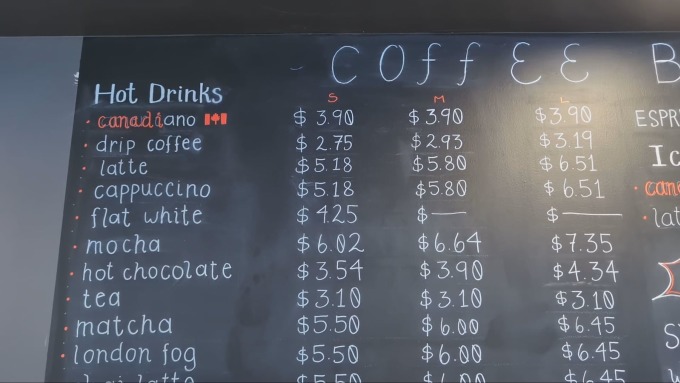 COffEE B
Hot Drinks
S M L
canadiano $3.90 $3.90 $3.90
drip coffee $2.75 $2.93 $3.19
latte $5.18 $5.80 $6.51
cappuccino $5.18 $5.80 $6.51
flat white $425 $— $—
mocha $6.02 $6.64 $7.35
hot chocolate $3.54 $3.90 $4.34
tea $3.10 $3.10 $3.10
matcha $5.50 $6.00 $6.45
london fog $5.50 $6.00 $6.45
latte $5.50 $6.00 $6.45
ESPR
Ic
can
lat